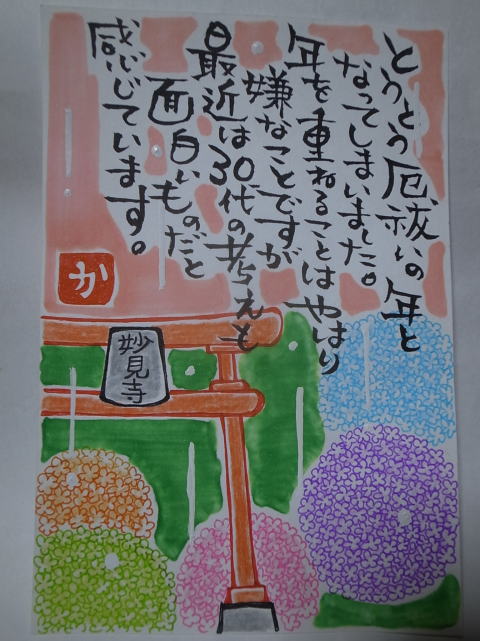 とうとう厄祓いの年と
なってしまいました。
年を重ねることはやはり
嫌なことですが
最近は30代の考えも
面白いものだと
感じています。
か
妙見寺